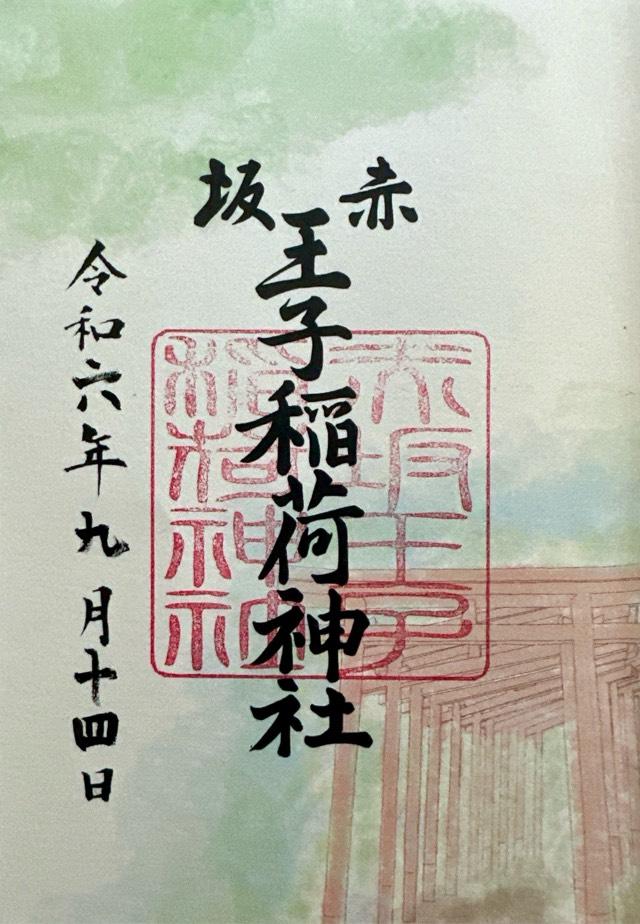 赤坂
王子稲荷神社
令和六年九月十四日
赤坂王子
稲荷神社